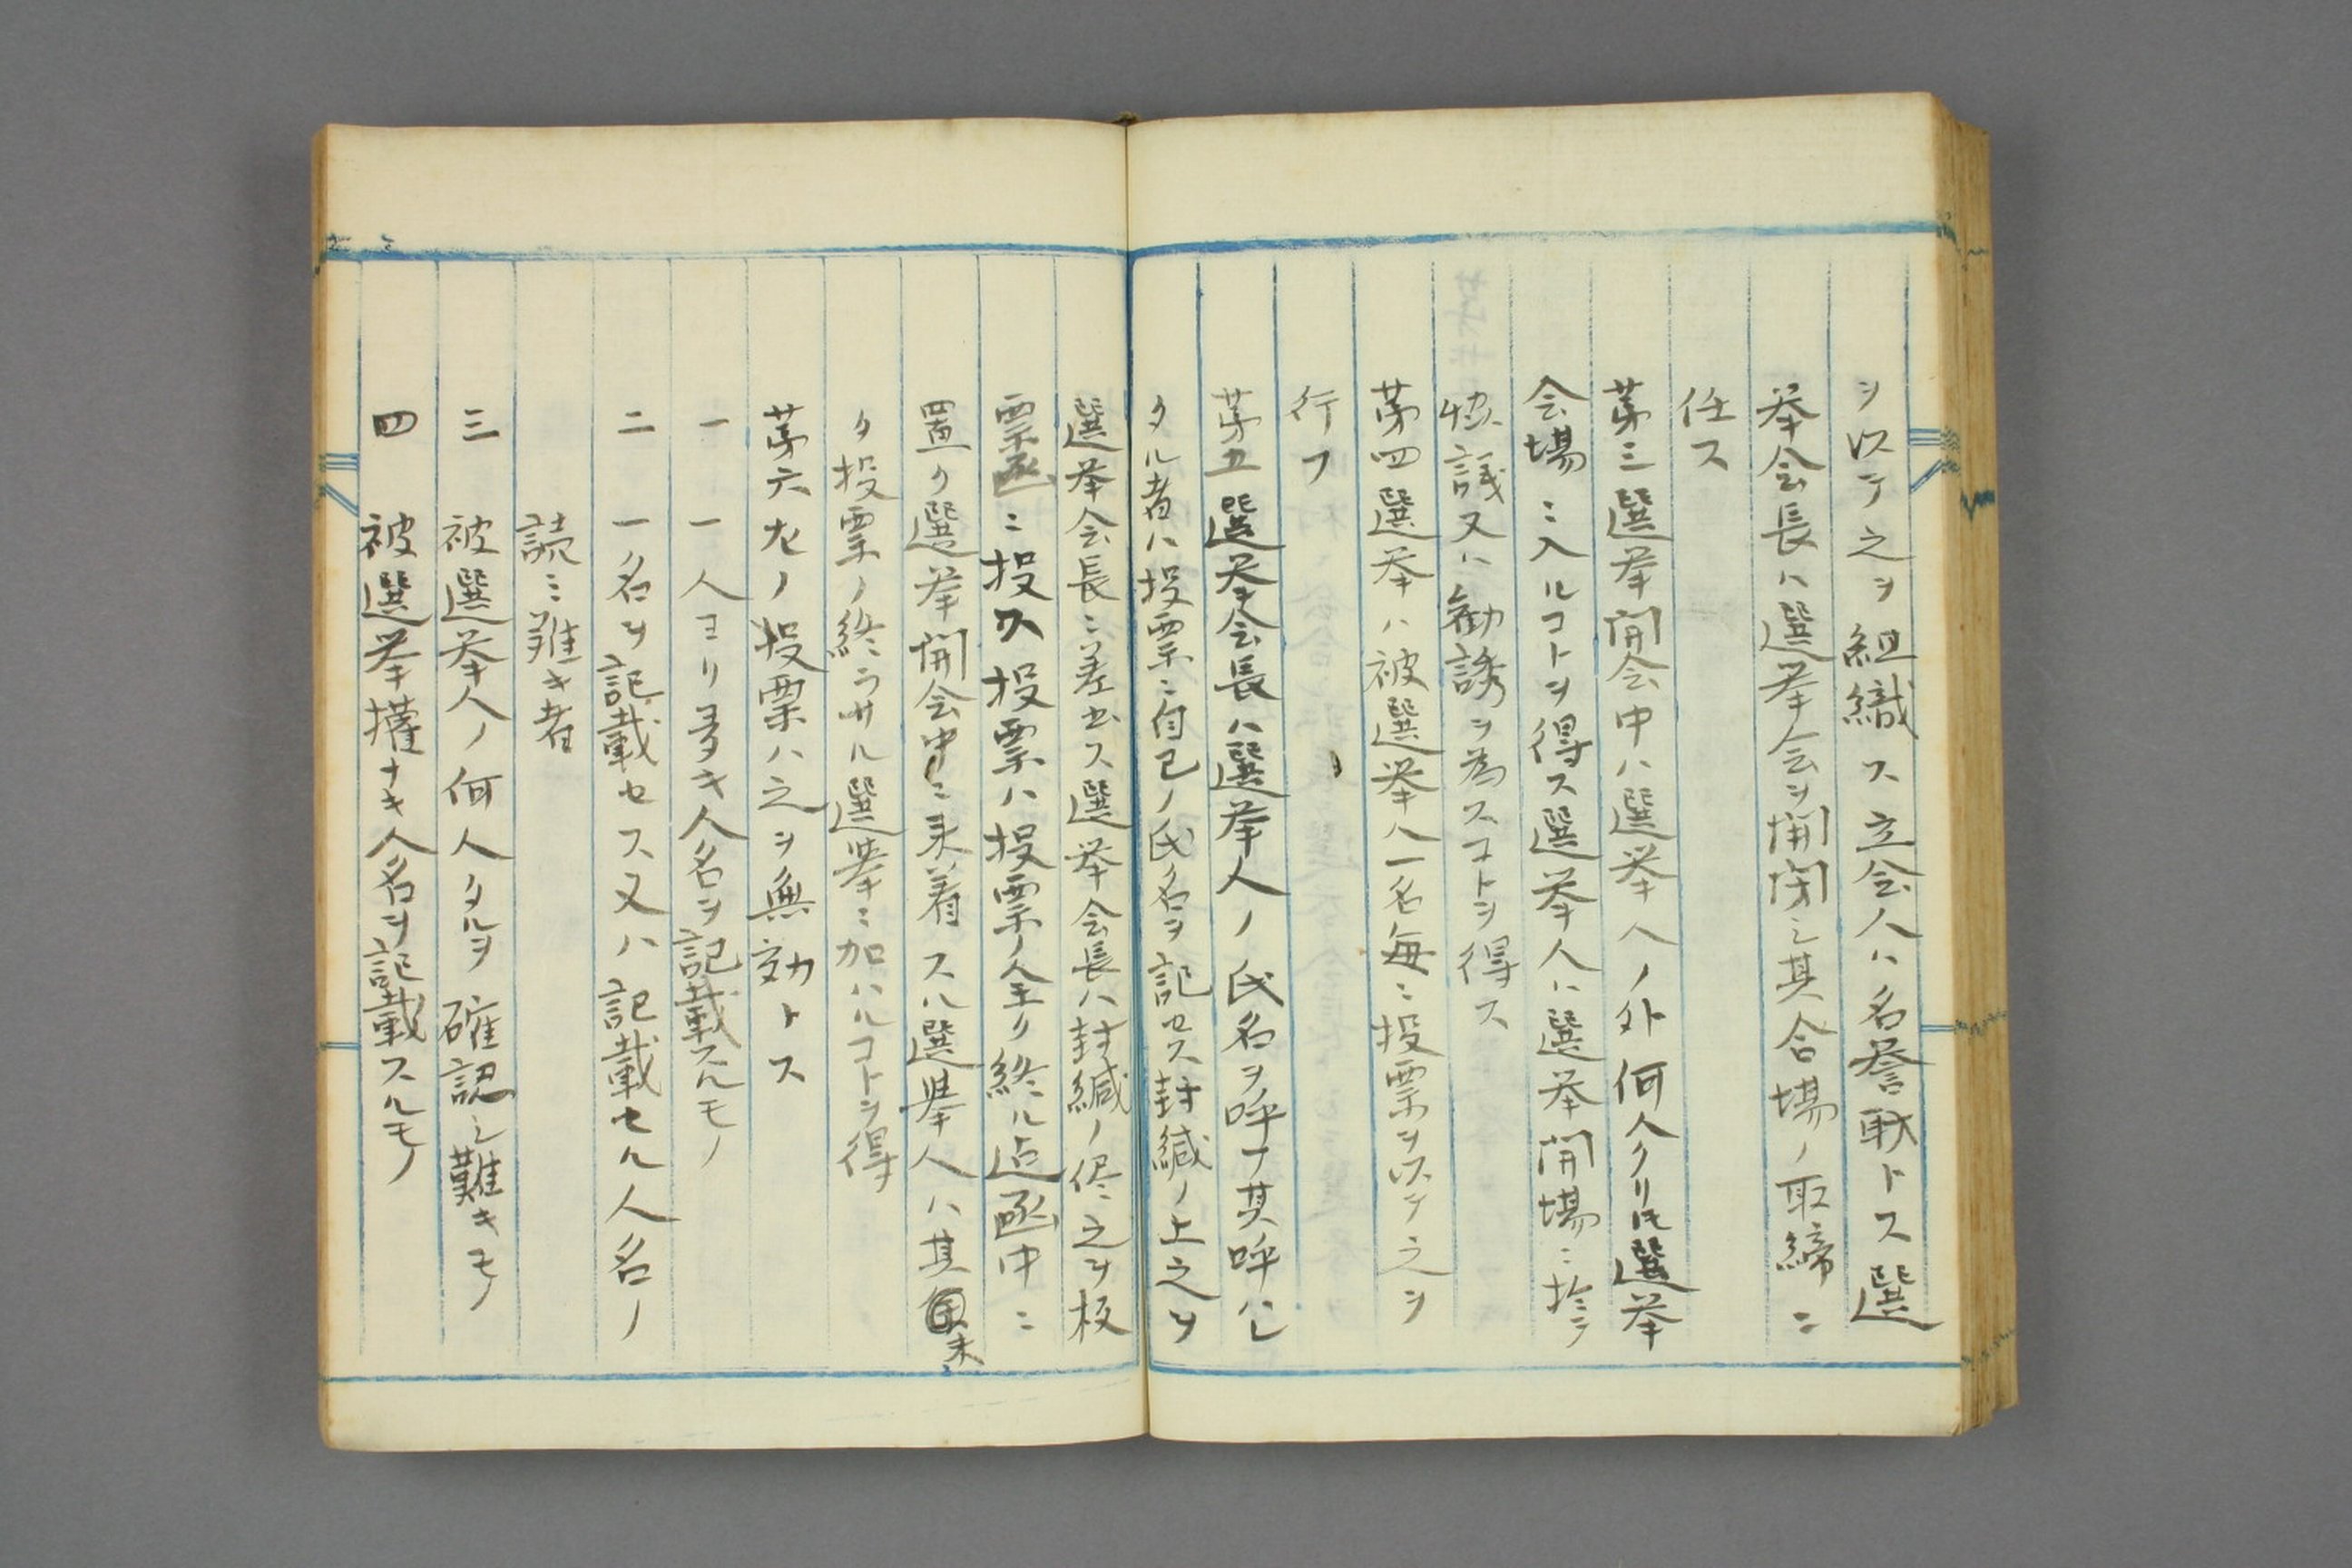 ヲ以テ之ヲ組織ス立会人ハ名誉職トス選
挙会長ハ選挙会ヲ開閉シ其会場ノ取締ニ
任ス
第三選挙開会中ハ選挙人ノ外何人タリ𪜈選挙
会場ニ入ルコトヲ得ス選挙人ハ選挙開場ニ於テ
協議又ハ勧誘ヲ為スコトヲ得ス
第四選挙ハ被選挙人一名毎ニ投票ヲ以テ之ヲ
行フ
第五選挙会長ハ選挙人ノ氏名ヲ呼ヒ其呼ハレ
タル者ハ投票ニ自己ノ氏名ヲ記セス封緘ノ上之ヲ
選挙会長ニ差出ス選挙会長ハ封緘ノ侭之ヲ投
票函ニ投ス投票ハ投票ノ全ク終ル迄函中ニ
置ク選挙開会中ニ来着スル選挙人ハ其未
タ投票ノ終ラサル選挙ニ加ハルコトヲ得
第六左ノ投票ハ之ヲ無効トス
一 一人ヨリ多キ人名ヲ記載スルモノ
二 一名ヲ記載セス又ハ記載セル人名ノ
読ミ難キ者
三 被選挙人ノ何人タルヲ確認シ難キモノ
四 被選挙権ナキ人名ヲ記載スルモノ